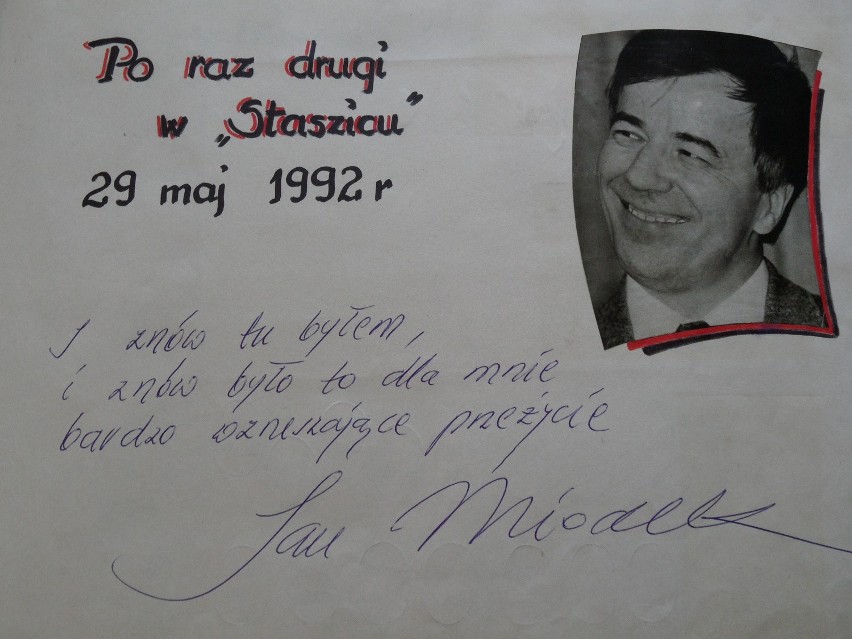 Po raz drugi
w „Staszicu”
29 maj 1992 r
I znów tu byłem,
i znów było to dla mnie
bardzo wzruszające przeżycie
Jan Miodek